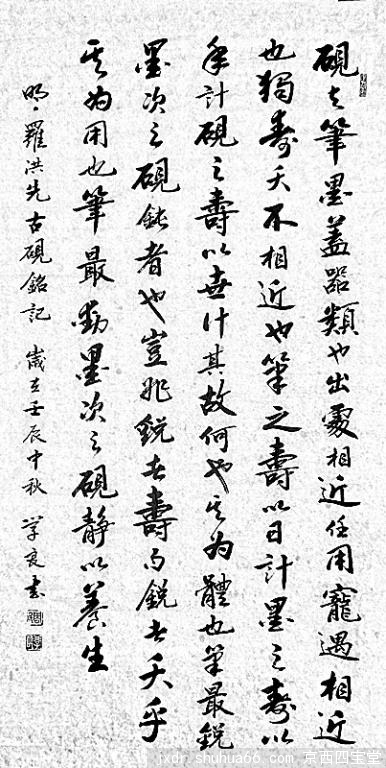 硯与筆墨蓋器類也出處相近任用寵遇相近
也獨壽夭不相近也筆之壽以日計墨之壽以
計硯之壽以世計其故何也其为體也筆最銳
墨次之硯鈍者也豈非銳者壽而銳者夭乎
其为用也筆最動墨次之硯靜以養生
明羅洪先古硯銘記 歲在壬辰中秋 学良书
京西四宝堂